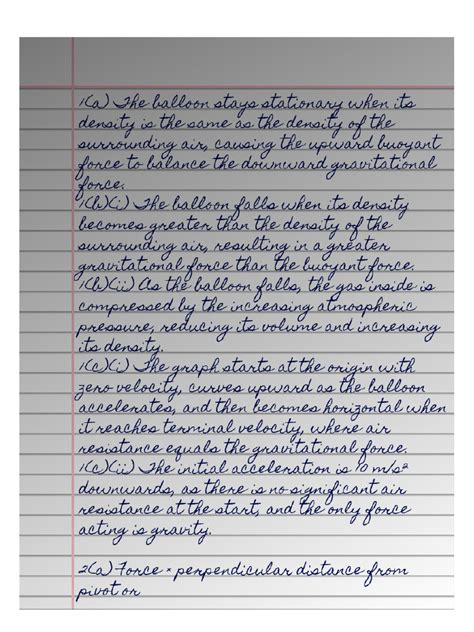 1(a) The balloon stays stationary when its
density is the same as the density of the
surrounding air, causing the upward buoyant
force to balance the downward gravitational
force.
1(b)(i) The balloon falls when its density
becomes greater than the density of the
surrounding air, resulting in a greater
gravitational force than the buoyant force.
1(b)(ii) As the balloon falls, the gas inside is
compressed by the increasing atmospheric
pressure, reducing its volume and increasing
its density.
1(c)(i) The graph starts at the origin with
zero velocity, curves upward as the balloon
accelerates, and then becomes horizontal when
it reaches terminal velocity, where air
resistance equals the gravitational force.
1(c)(ii) The initial acceleration is 10 m/s²
downwards, as there is no significant air
resistance at the start, and the only force
acting is gravity.
2(a) Force × perpendicular distance from
pivot or